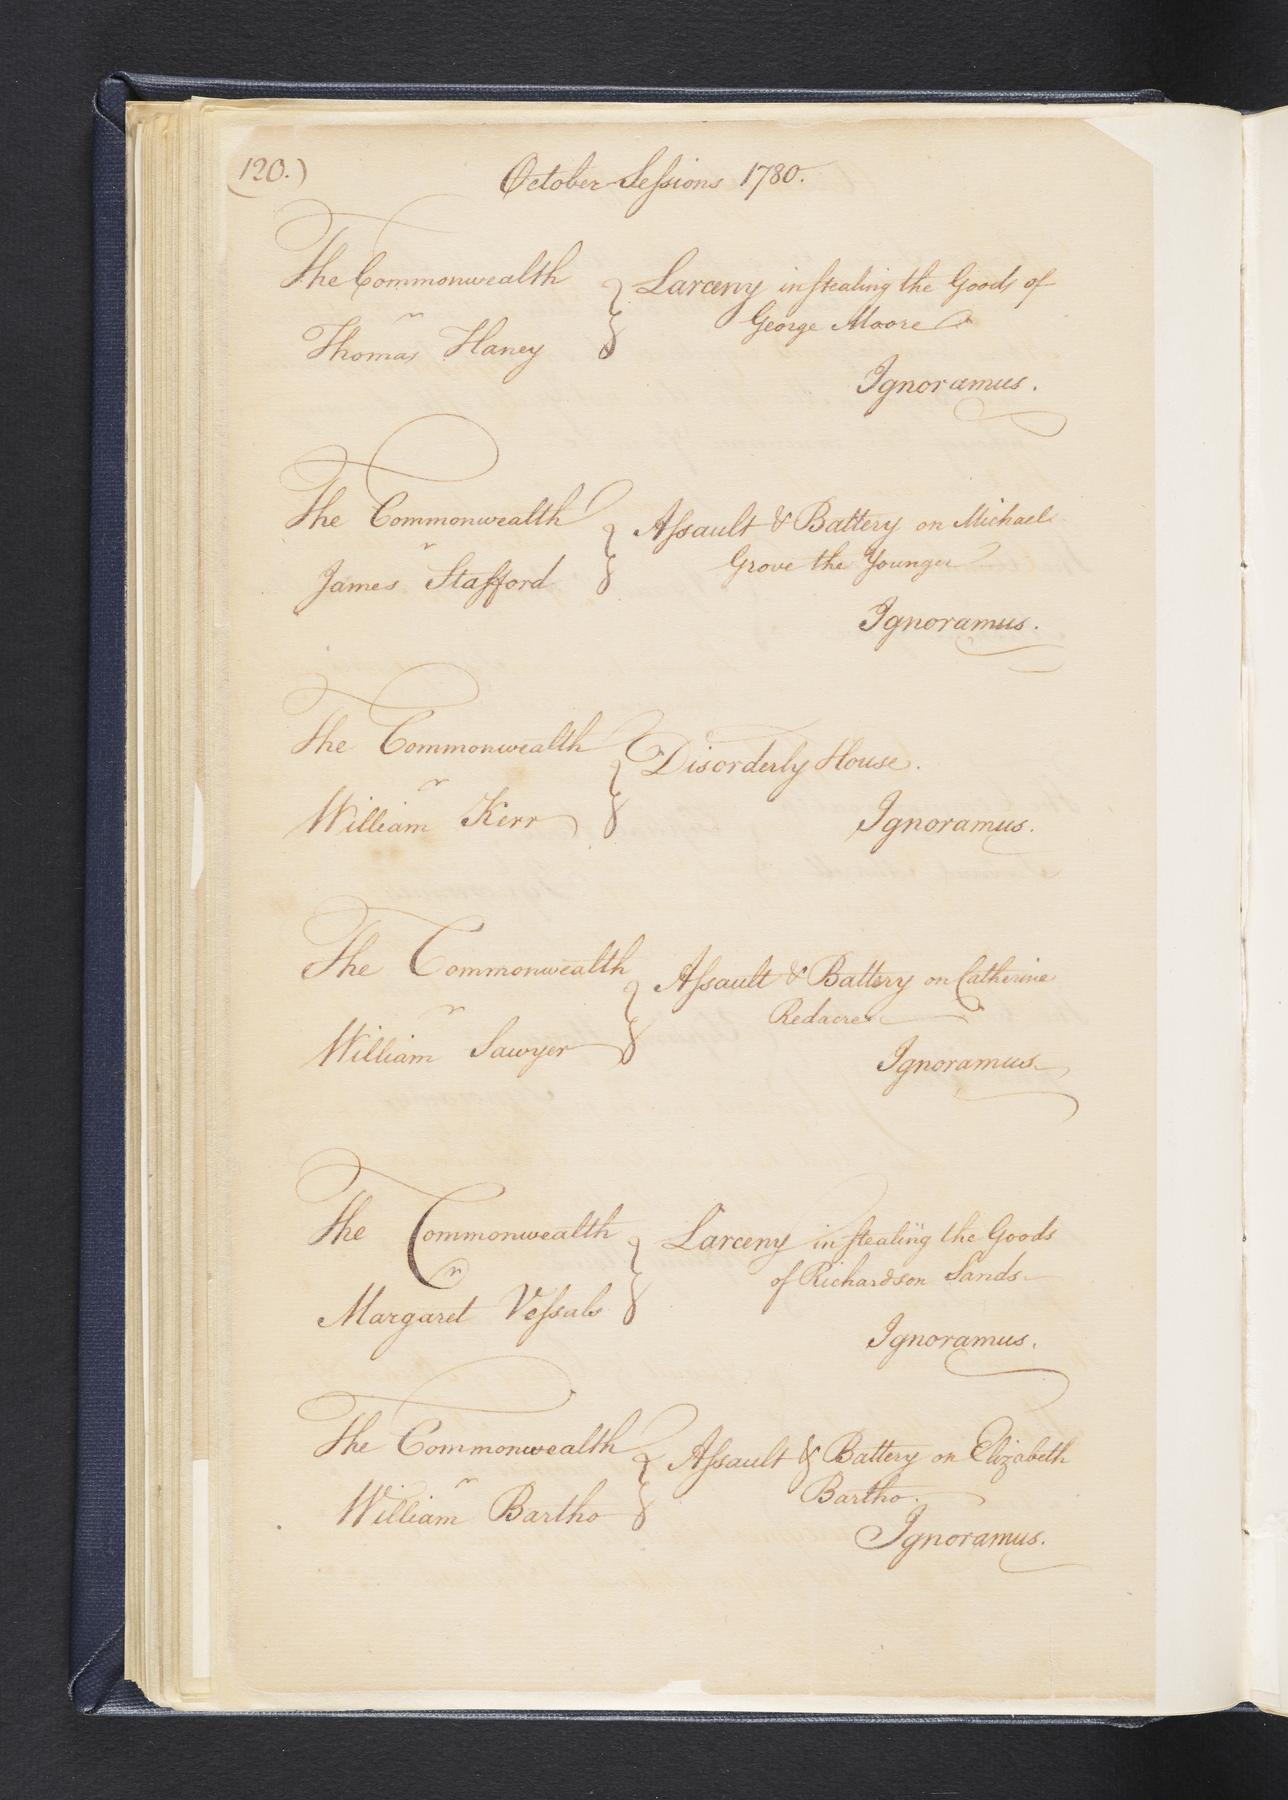 120.)
October Sessions 1780.
The Commonwealth
Larceny in stealing the Goods of
vs
George Moore
Thomas Haney
Ignoramus.
The Commonwealth
Assault & Battery on Michael
vs
Grove the Younger
James Stafford
Ignoramus.
The Commonwealth
Disorderly House.
vs
William Kerr
Ignoramus.
The Commonwealth
Assault & Battery on Catherine
vs
Redacre
William Sawyer
Ignoramus
The Commonwealth
Larceny in stealing the Goods
vs
of Richardson Sands
Margaret Vessals
Ignoramus.
The Commonwealth
Assault & Battery on Elizabeth
vs
Bartho.
William Bartho
Ignoramus.